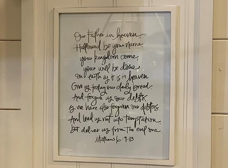 Our Father in heaven
Hallowed be your name
your kingdom come
your will be done
on earth as it is in heaven
Give us today our daily bread
And forgive us our debts
as we have also forgiven our debtors
And lead us not into temptation
but deliver us from the evil one
Matthew 6: